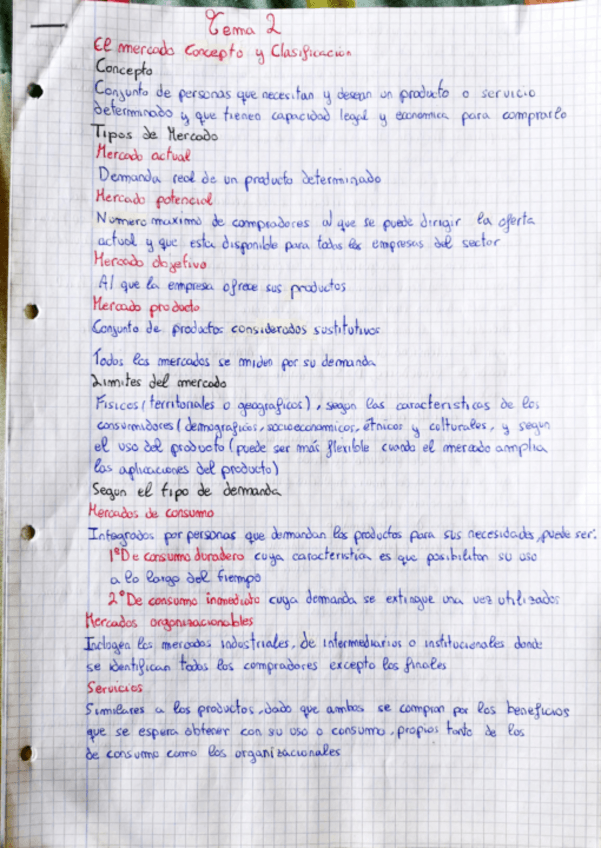 Tema 2
El mercado Concepto y Clasificación
Concepto
Conjunto de personas que necesitan y desean un producto o servicio
determinado y que tienen capacidad legal y economica para comprarlo
Tipos de Mercado
Mercado actual
Demanda real de un producto determinado
Mercado potencial
Numero maximo de compradores al que se puede dirigir la oferta
actual y que esta disponible para todas las empresas del sector
Mercado objetivo
Al que la empresa ofrece sus productos
Mercado producto
Conjunto de productos considerados sustitutivos
Todos los mercados se miden por su demanda
Limites del mercado
Fisicos (territoriales o geograficos), segun las caracteristicas de los
consumidores (demograficos, socioeconomicos, étnicos y culturales, y segun
el uso del producto (puede ser más flexible cuando el mercado amplia
las aplicaciones del producto)
Segun el tipo de demanda
Mercados de consumo
Integrados por personas que demandan los productos para sus necesidades, puede ser:
1º De consumo duradero cuya caracteristica es que posibilitan su uso
a lo largo del tiempo
2º De consumo inmediato cuya demanda se extingue una vez utilizados
Mercados organizacionables
Inclogen los mercados industriales, de intermediarios o institucionales donde
se identifican todos los compradores excepto los finales
Servicios
Similares a los productos, dado que ambos se compran por los beneficios
que se espera obtener con su uso o consumo, propios tanto de los
de consumo como los organizacionales